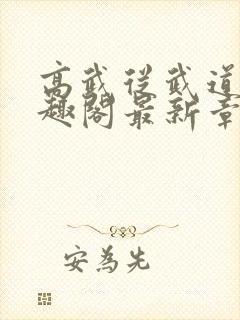 高武從武道
趣閣最新章
安為先